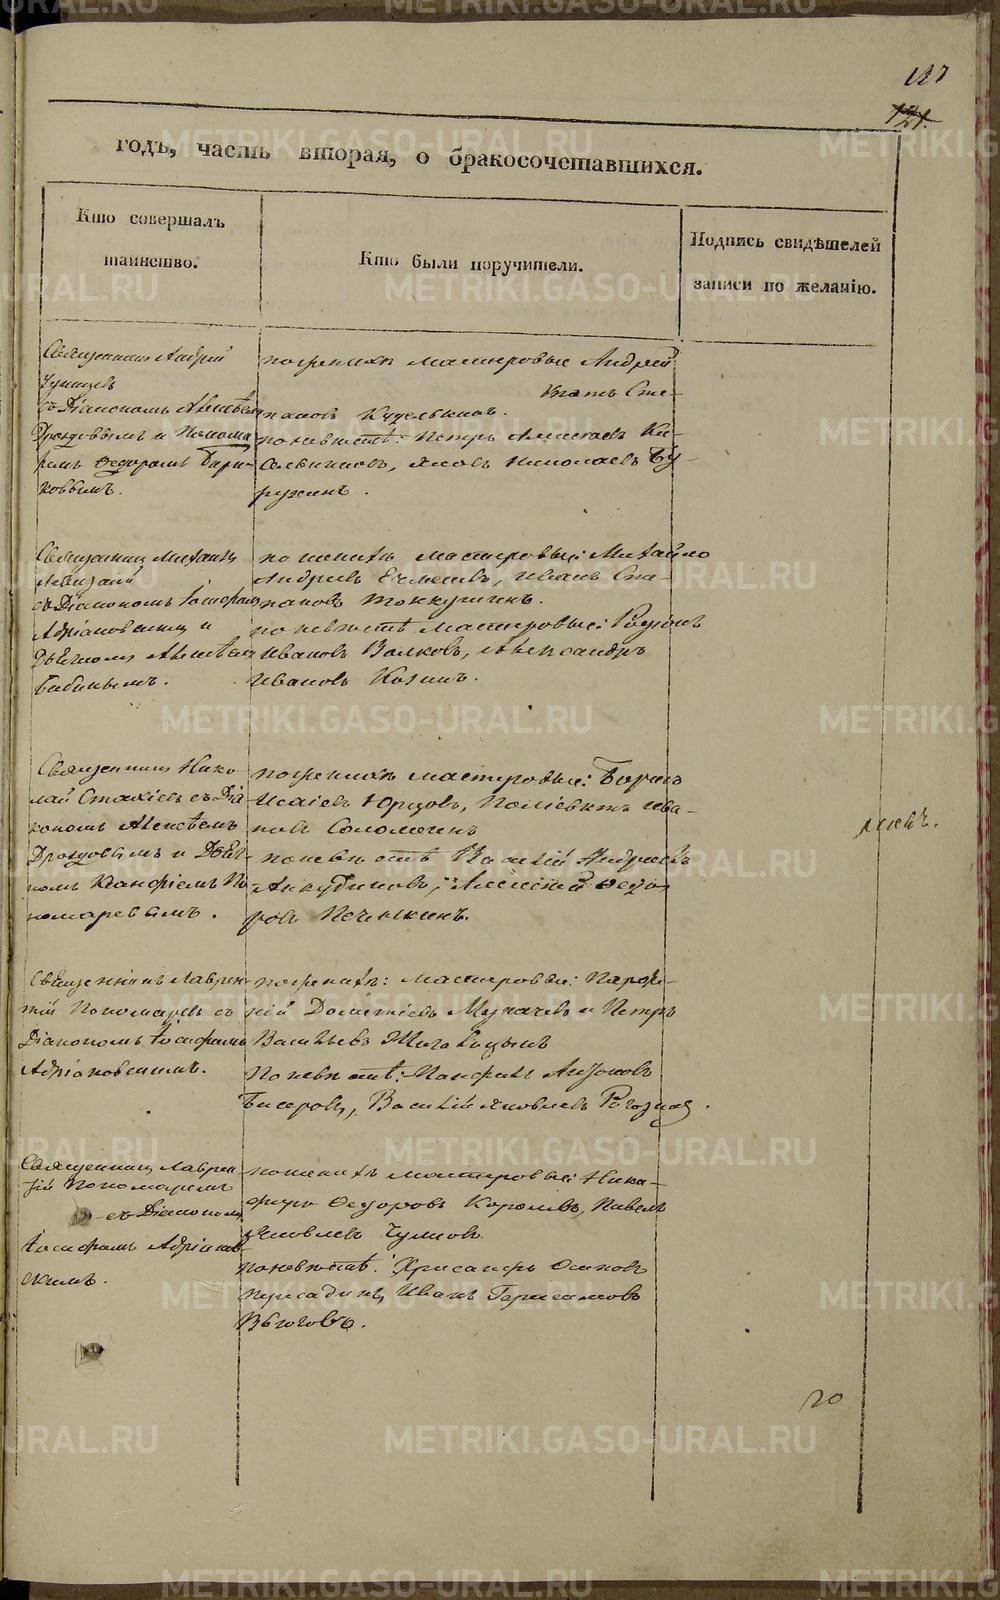 127
121.
годъ, часть вторая, о бракосочетавшихся.
Кто совершалъ
таинство.
Кто были поручители.
Подпись свидѣтелей
записи по желанію.
Священникъ Андрей
съ Діакономъ Алексѣемъ
Дроздовымъ и Понома
ремъ Федоромъ
ковымъ.
по женихѣ мастеровые Андрей
Игнатъ Сте-
пановъ Куделькинъ.
по невѣстѣ: Петръ Алексѣевъ Ки-
сельниковъ, Яковъ Николаевъ Бу-
ружинъ.
Священникъ Михаилъ
съ Діакономъ Іосифомъ
Адріановскимъ и
Дьячкомъ Алексѣемъ
Бабинымъ.
по женихѣ мастеровые: Михайло
Андреевъ, Иванъ Сте-
пановъ
по невѣстѣ мастеровые: Родіонъ
Ивановъ Волковъ, Александръ
Ивановъ Козинъ.
Священникъ Нико
лай Стахіевъ съ Діа
кономъ Алексѣемъ
Дроздовымъ и Дьяч-
комъ Ксанфіемъ По
номаревымъ.
по женихѣ мастеровые: Борисъ
Исаіевъ Юрцовъ, Поліевктъ Ива-
новъ Соломеинъ
по невѣстѣ Василій Андреевъ
Анкудиновъ, Алексѣй Федо
ровъ Печенкинъ.
ликъ.
Священникъ Лаврен
тій Пономаревъ съ
Діакономъ Іосифомъ
Адріановскимъ.
по женихѣ: мастеровые: Парфе-
ній Дометіевъ и Петръ
Васильевъ
По невѣстѣ: Панфилъ
Бисеровъ, Василій Яковлевъ
Священникъ Лаврен
тій Пономаревъ
съ Діакономъ
Іосифомъ Адріанов-
скимъ.
по женихѣ мастеровые: Ника-
форъ Федоровъ Королевъ, Павелъ
Яковлевъ Чулковъ
по невѣстѣ: Хрисанфъ Осиповъ
Иванъ Герасимовъ
Вьюговъ.
20
METRIKI.GASO-URAL.RU